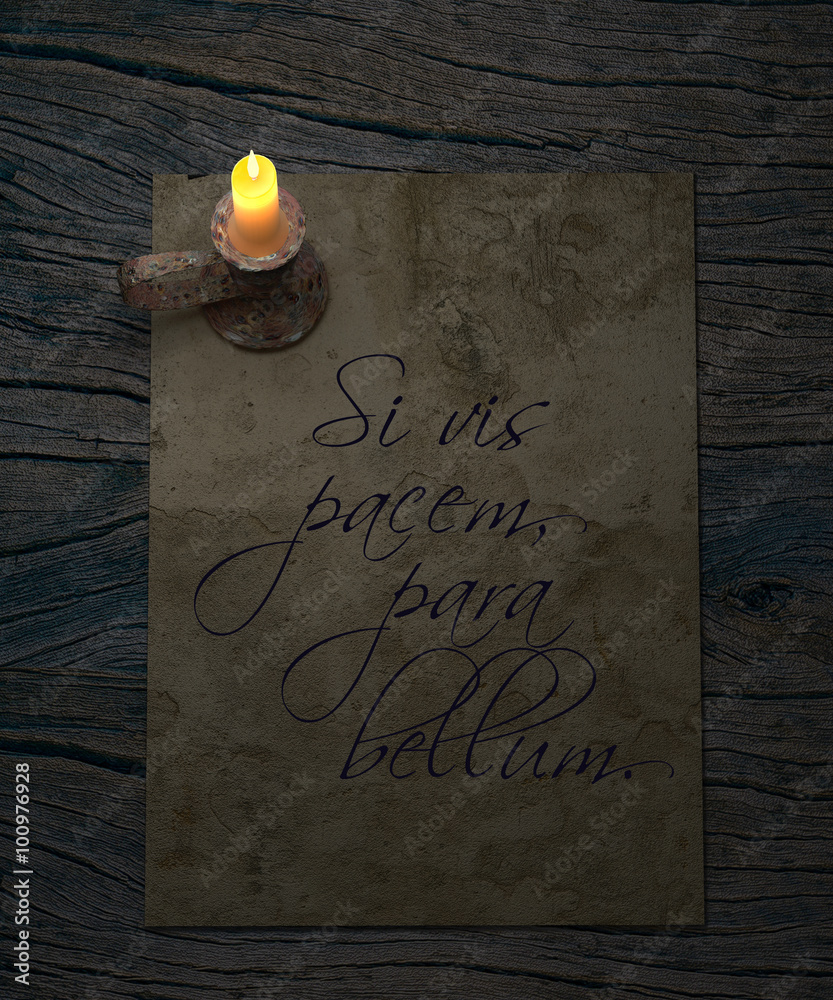 Si vis
pacem,
para
bellum.
Adobe Stock | #100976928